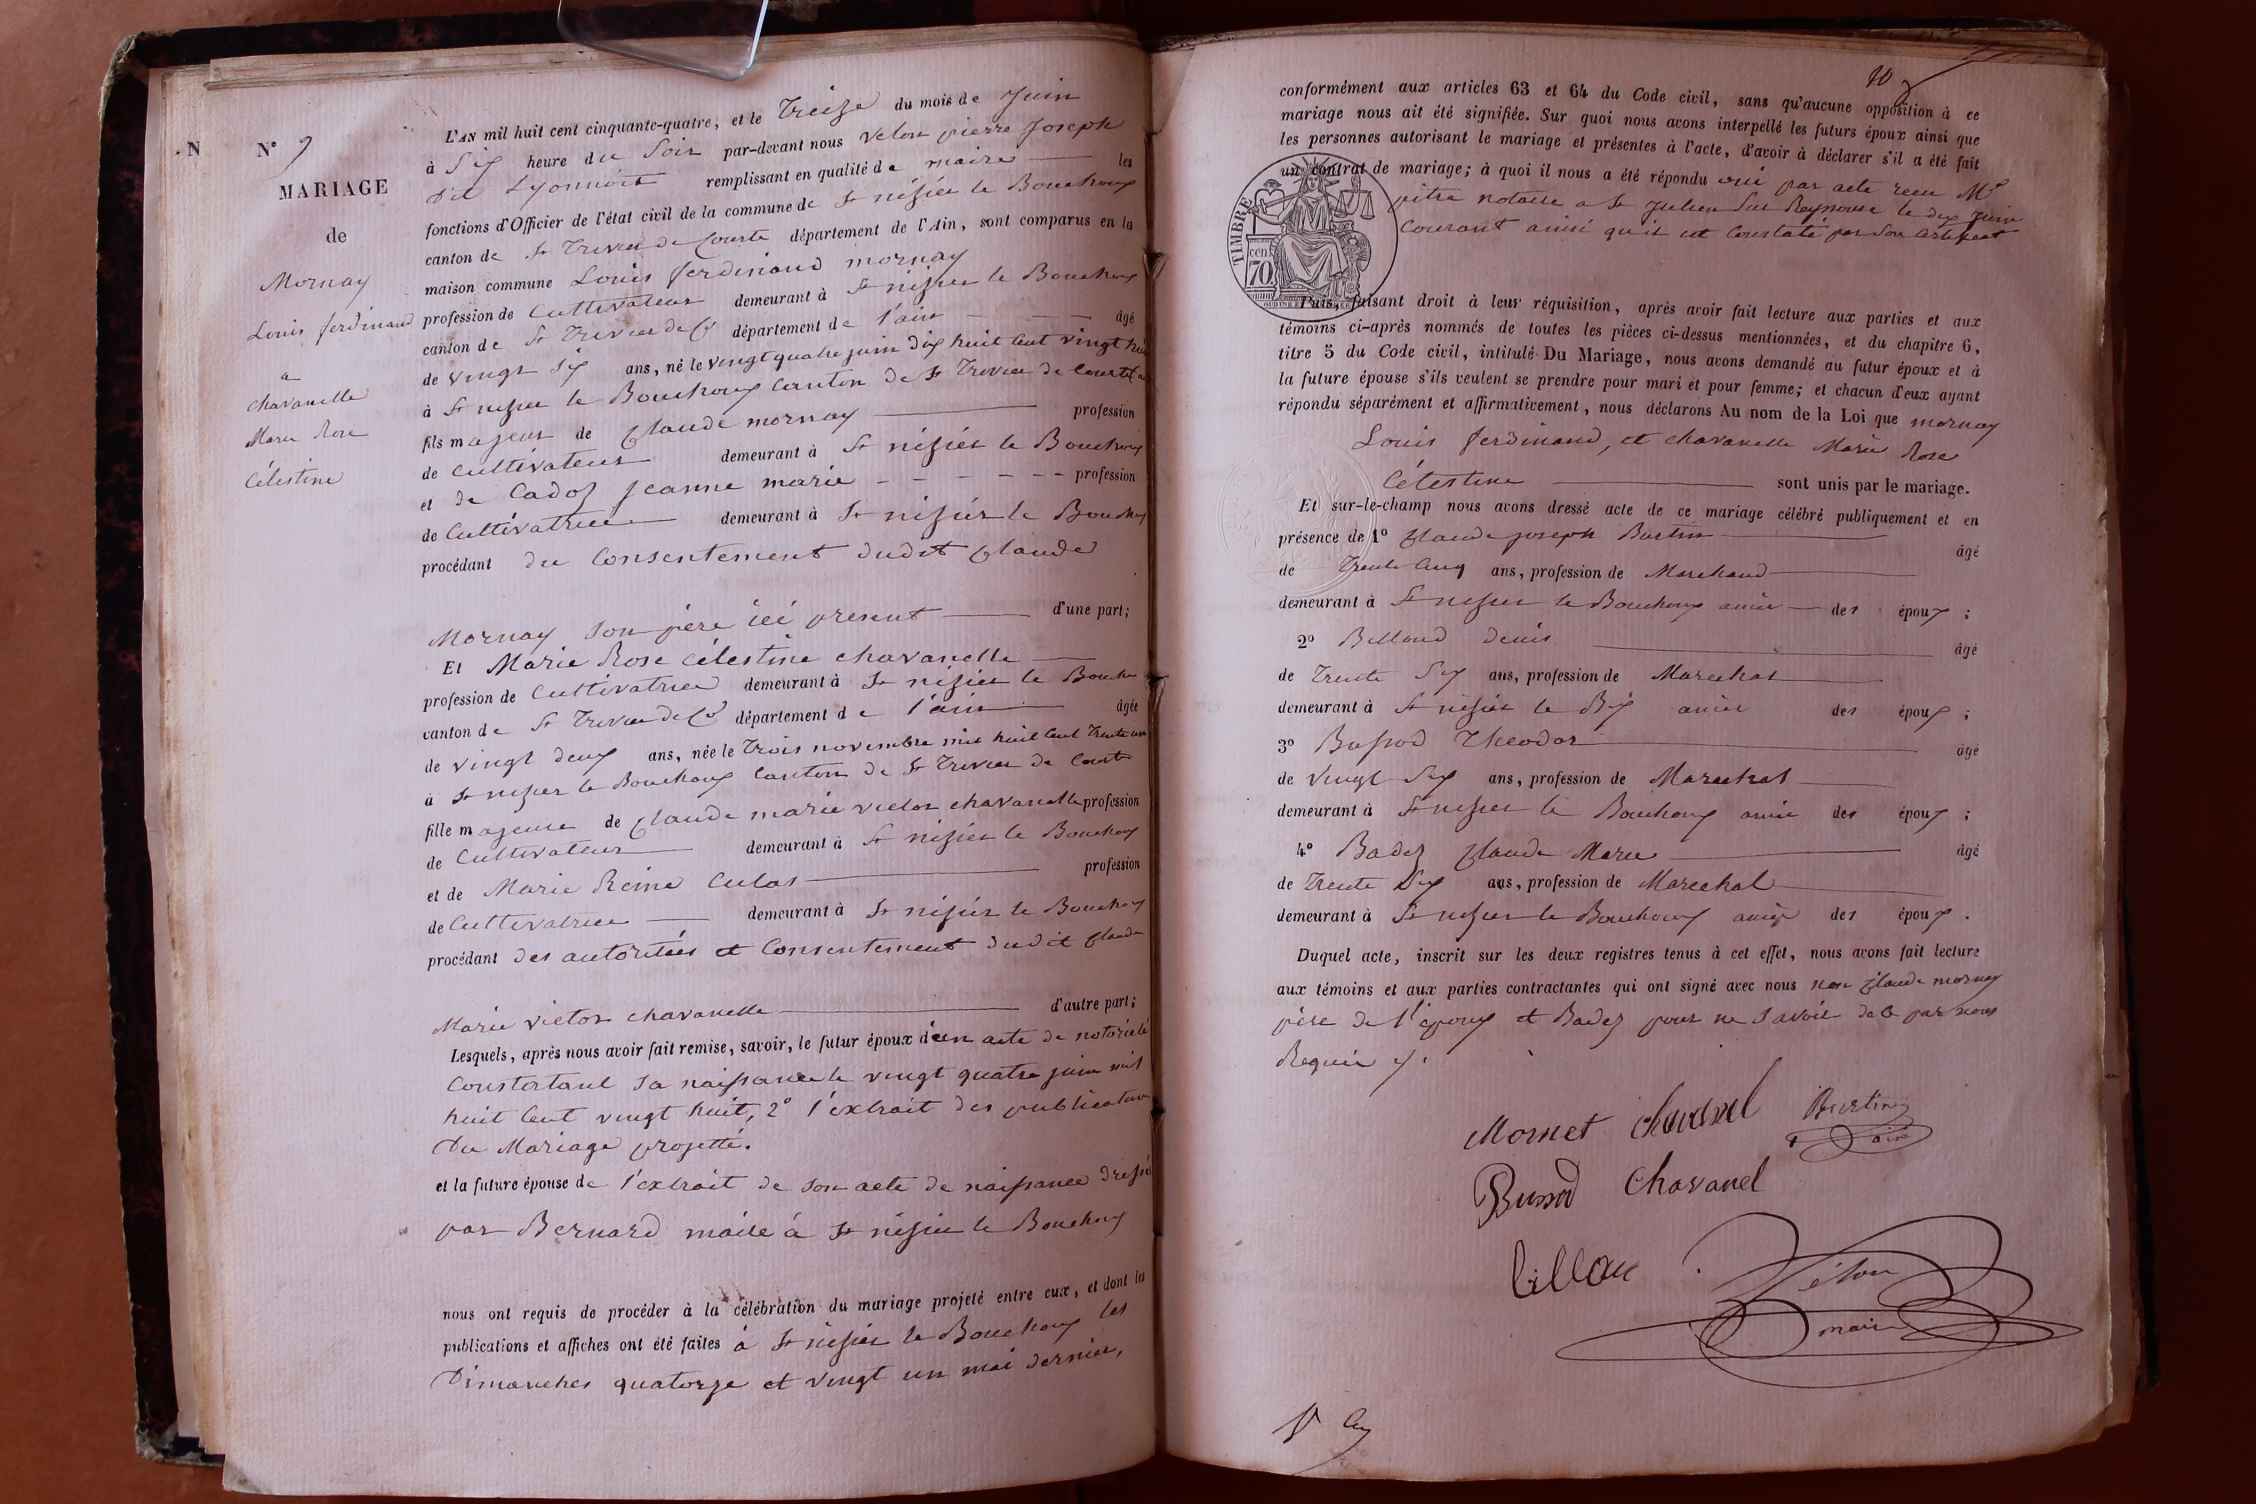 N
N° 9
MARIAGE
de
Mornay
Louis ferdinand
a
chavanelle
Marie Rose
Célestine
L'AN mil huit cent cinquante-quatre, et le Treize du mois de Juin
à Six heure du Soir par-devant nous velon pierre Joseph
dit Lyonnois remplissant en qualité de maire les
fonctions d'Officier de l'état civil de la commune de St nisier le Bouchoux
canton de St Trivier de Courte département de l'Ain, sont comparus en la
maison commune Louis ferdinand mornay
profession de Cultivateur demeurant à St nisier le Bouchoux
canton de St Trivier de Cs département de l'ain âgé
de vingt Six ans, né le vingt quatre juin dix huit Cent vingt huit
à St nisier le Bouchoux Canton de St Trivier de Courte
fils majeur de Claude mornay profession
de Cultivateur demeurant à St nisier le Bouchoux
et de Cadoz Jeanne marie profession
de Cultivatrice demeurant à St nisier le Bouchoux
procédant du Consentement dudit Claude
Mornay Son père ici présent d'une part;
Et Marie Rose Célestine chavanelle
profession de Cultivatrice demeurant à St nisier le Bouchoux
canton de St Trivier de Cs département de l'ain âgée
de vingt deux ans, née le Trois novembre mil huit Cent Trente un
à St nisier le Bouchoux Canton de St Trivier de Courte
fille majeure de Claude marie victor chavanelle profession
de Cultivateur demeurant à St nisier le Bouchoux
et de Marie Reine Culas profession
de Cultivatrice demeurant à St nisier le Bouchoux
procédant des autoritées et Consentement dudit Claude
Marie victor chavanelle d'autre part;
Lesquels, après nous avoir fait remise, savoir, le futur époux d'un acte de notoriété
Constatant Sa naissance le vingt quatre juin mil
huit Cent vingt huit, 2° l'extrait des publication
Du Mariage projetté.
et la future épouse de l'extrait de Son acte de naissance dressé
par Bernard maire à St nisier le Bouchoux
nous ont requis de procéder à la célébration du mariage projeté entre eux, et dont les
publications et affiches ont été faites à St nisier le Bouchoux les
Dimanches quatorze et vingt un mai dernier,
10
conformément aux articles 63 et 64 du Code civil, sans qu'aucune opposition à ce
mariage nous ait été signifiée. Sur quoi nous avons interpellé les futurs époux ainsi que
les personnes autorisant le mariage et présentes à l'acte, d'avoir à déclarer s'il a été fait
un contrat de mariage; à quoi il nous a été répondu oui par acte recu Me
pitre notaire a St Julien Sur Reyssouse le dix Juin
Courant ainsi qu'il est Constaté par Son Certificat
TIMBRE
cent
70
Puis, faisant droit à leur réquisition, après avoir fait lecture aux parties et aux
témoins ci-après nommés de toutes les pièces ci-dessus mentionnées, et du chapitre 6,
titre 5 du Code civil, intitulé Du Mariage, nous avons demandé au futur époux et à
la future épouse s'ils veulent se prendre pour mari et pour femme; et chacun d'eux ayant
répondu séparément et affirmativement, nous déclarons Au nom de la Loi que mornay
Louis ferdinand, et chavanelle Marie Rose
Célestine sont unis par le mariage.
Et sur-le-champ nous avons dressé acte de ce mariage célébré publiquement et en
présence de 1° Claude joseph Burtin âgé
de Trente Cinq ans, profession de Marchand
demeurant à St nisier le Bouchoux amis des époux;
2° Billoud denis âgé
de Trente Six ans, profession de Marechal
demeurant à St nisier le Bx amis des époux;
3° Bussod Theodor âgé
de vingt Six ans, profession de Marechal
demeurant à St nisier le Bouchoux amis des époux;
4° Badez Claude Marie âgé
de Trente Six ans, profession de Marechal
demeurant à St nisier le Bouchoux amis des époux.
Duquel acte, inscrit sur les deux registres tenus à cet effet, nous avons fait lecture
aux témoins et aux parties contractantes qui ont signé avec nous non Claude mornay
père de l'époux et Badez pour ne Savoir de ce par nous
Requis
Mornet chavanel Burtin
Bussod chavanel
billou Vélon
maire